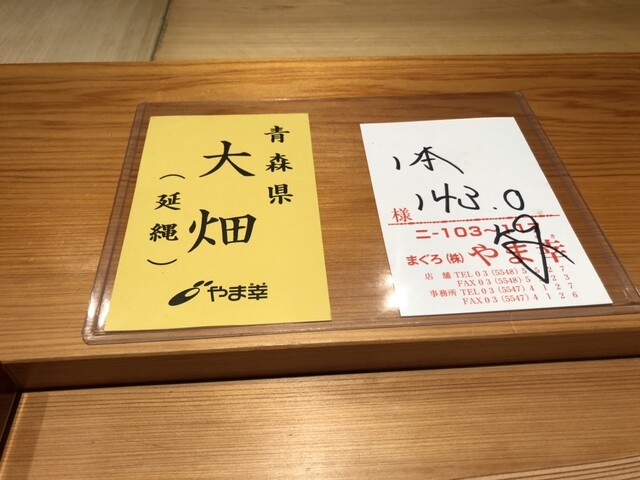 青森県
大畑
（延縄）
やま幸
1本
143.0
様
ニ-103~
まぐろ(株)やま幸
店舗 TEL03(5548)5
FAX03(5548)5
事務所 TEL03(5547)4127
FAX03(5547)4126